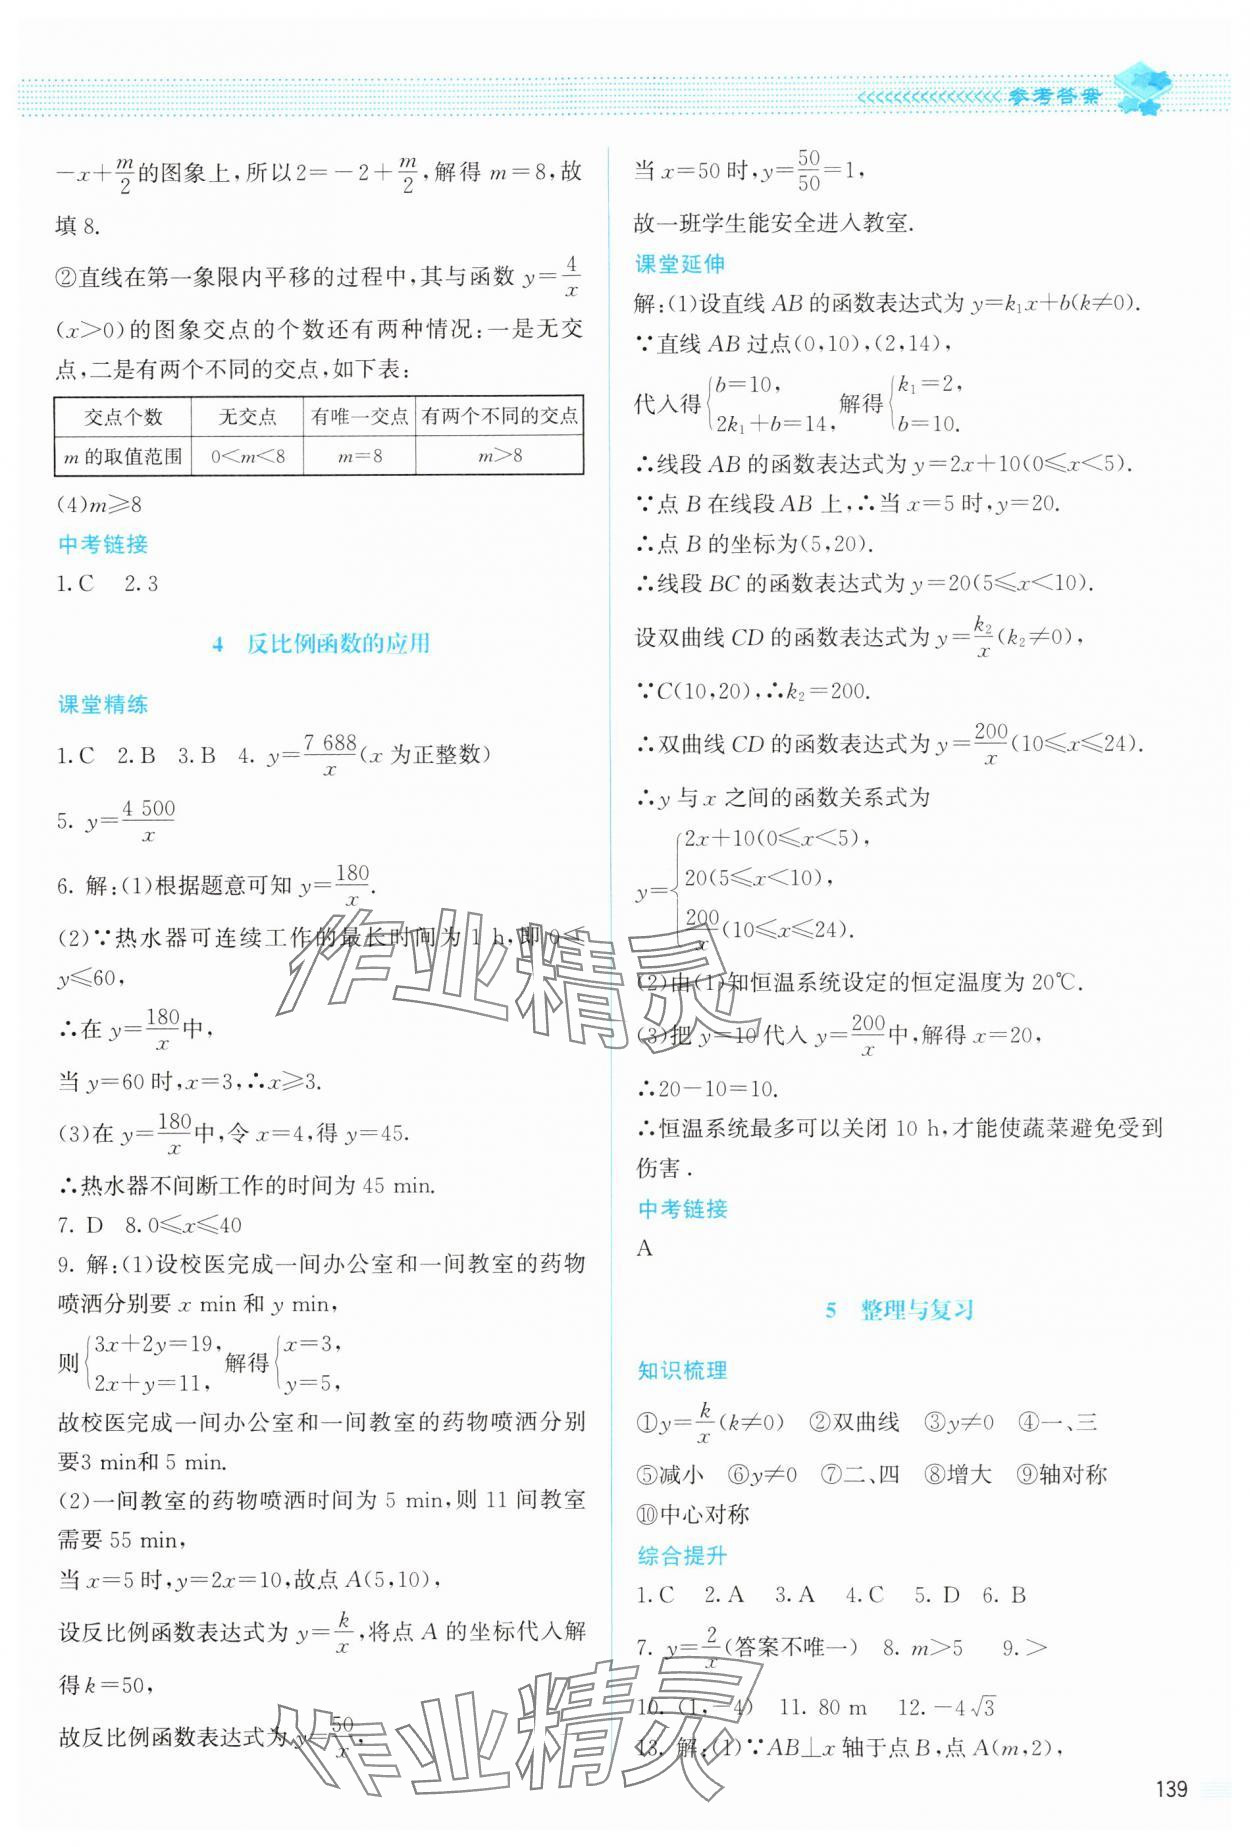 参考答案
$-x+\frac{m}{2}$的图象上,所以$2=-2+\frac{m}{2}$,解得 $m=8$,故
填 8.
②直线在第一象限内平移的过程中,其与函数 $y=\frac{4}{x}$
$(x>0)$的图象交点的个数还有两种情况:一是无交
点,二是有两个不同的交点,如下表:
交点个数 无交点 有唯一交点 有两个不同的交点
m 的取值范围 0<m<8 m=8 m>8
(4)m≥8
中考链接
1.C 2.3
4 反比例函数的应用
课堂精练
1.C 2.B 3.B 4. $y=\frac{7\ 688}{x}$(x 为正整数)
5. $y=\frac{4\ 500}{x}$
6. 解:(1)根据题意可知 $y=\frac{180}{x}$.
(2)∵热水器可连续工作的最长时间为 1 h,即 0≤
y≤60,
∴在 $y=\frac{180}{x}$中,
当 y=60 时,x=3,∴x≥3.
(3)在 $y=\frac{180}{x}$中,令 x=4,得 y=45.
∴热水器不间断工作的时间为 45 min.
7. D 8.0≤x≤40
9. 解:(1)设校医完成一间办公室和一间教室的药物
喷洒分别要 x min 和 y min,
则$\begin{cases}3x+2y=19,\\2x+y=11,\end{cases}$解得$\begin{cases}x=3,\\y=5,\end{cases}$
故校医完成一间办公室和一间教室的药物喷洒分别
要3 min和 5 min.
(2)一间教室的药物喷洒时间为 5 min,则 11 间教室
需要 55 min,
当 x=5 时,y=2x=10,故点 A(5,10),
设反比例函数表达式为 $y=\frac{k}{x}$,将点 A 的坐标代入解
得 k=50,
故反比例函数表达式为 $y=\frac{50}{x}$,
当 x=50 时,$y=\frac{50}{50}=1$,
故一班学生能安全进入教室.
课堂延伸
解:(1)设直线 AB 的函数表达式为 $y=k_1x+b(k≠0)$.
∵直线 AB 过点(0,10),(2,14),
代入得$\begin{cases}b=10,\\2k_1+b=14,\end{cases}$解得$\begin{cases}k_1=2,\\b=10.\end{cases}$
∴线段 AB 的函数表达式为 y=2x+10(0≤x<5).
∵点 B 在线段 AB 上,∴当 x=5 时,y=20.
∴点 B 的坐标为(5,20).
∴线段 BC 的函数表达式为 y=20(5≤x<10).
设双曲线 CD 的函数表达式为 $y=\frac{k_2}{x}(k_2≠0)$,
∵C(10,20),∴$k_2=200$.
∴双曲线 CD 的函数表达式为 $y=\frac{200}{x}$(10≤x≤24).
∴y 与 x 之间的函数关系式为
$y=\begin{cases}2x+10(0≤x<5),\\20(5≤x<10),\\\frac{200}{x}(10≤x≤24).\end{cases}$
(2)由(1)知恒温系统设定的恒定温度为 20℃.
(3)把 y=10 代入 $y=\frac{200}{x}$中,解得 x=20,
∴20-10=10.
∴恒温系统最多可以关闭 10 h,才能使蔬菜避免受到
伤害.
中考链接
A
5 整理与复习
知识梳理
①$y=\frac{k}{x}(k≠0)$ ②双曲线 ③y≠0 ④一、三
⑤减小 ⑥y≠0 ⑦二、四 ⑧增大 ⑨轴对称
⑩中心对称
综合提升
1.C 2.A 3.A 4.C 5. D 6. B
7. $y=\frac{2}{x}$(答案不唯一) 8. m>5 9.>
10. (1,-4) 11. 80 m 12.$-4\sqrt{3}$
13. 解:(1)∵AB⊥x 轴于点 B,点 A(m,2),
139
作业精灵
作业精灵